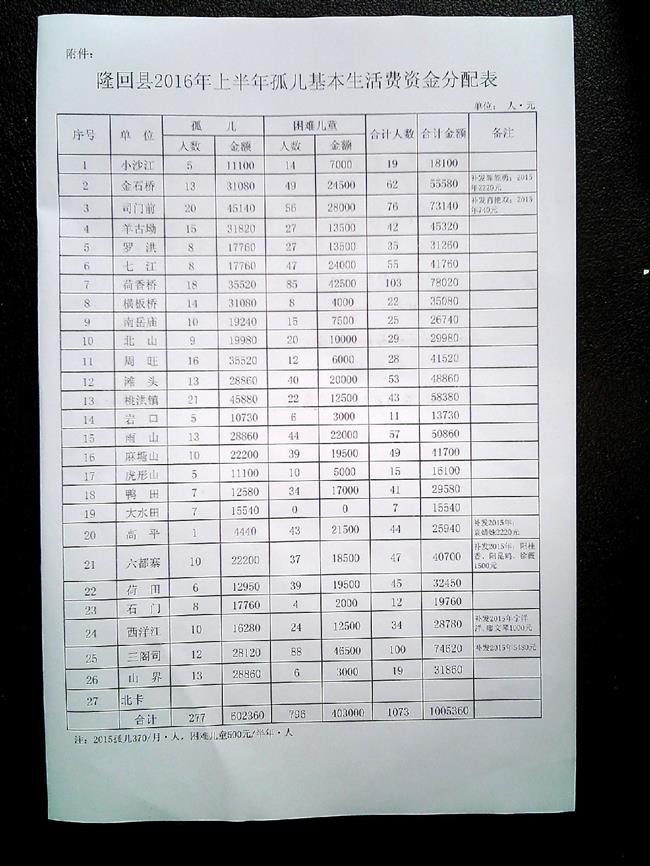 附件：
隆回县2016年上半年孤儿基本生活费资金分配表
单位： 人·元
序号 单 位 孤 儿 困难儿童 合计人数 合计金额 备注
人数 金额 人数 金额
1 小沙江 5 11100 14 7000 19 18100
2 金石桥 13 31080 49 24500 62 55580 补发 2015年2220元
3 司门前 20 45140 56 28000 76 73140 补发 2015年740元
4 羊古坳 15 31820 27 13500 42 45320
5 罗 洪 8 17760 27 13500 35 31260
6 七 江 8 17760 47 24000 55 41760
7 荷香桥 18 35520 85 42500 103 78020
8 横板桥 14 31080 8 4000 22 35080
9 南岳庙 10 19240 15 7500 25 26740
10 北 山 9 19980 20 10000 29 29980
11 周 旺 16 35520 12 6000 28 41520
12 滩 头 13 28860 40 20000 53 48860
13 桃洪镇 21 45880 22 12500 43 58380
14 岩 口 5 10730 6 3000 11 13730
15 雨 山 13 28860 44 22000 57 50860
16 麻塘山 10 22200 39 19500 49 41700
17 虎形山 5 11100 10 5000 15 16100
18 鸭 田 7 12580 34 17000 41 29580
19 大水田 7 15540 0 0 7 15540
20 高 平 1 4440 43 21500 44 25940 补发2015年：2220元
21 六都寨 10 22200 37 18500 47 40700 补发2015年：1500元
22 荷 田 6 12950 39 19500 45 32450
23 石 门 8 17760 4 2000 12 19760
24 西洋江 10 16280 24 12500 34 28780 补发2015年 1000元
25 三阁司 12 28120 88 46500 100 74620 补发2015年5480元
26 山 界 13 28860 6 3000 19 31860
27 北卡
合计 277 602360 796 403000 1073 1005360
注：2015孤儿370/月·人，困难儿童500元/半年·人